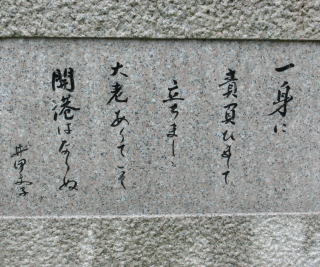 一身に
責負ひまして
立ちましゝ
大老ありてこそ
開港はなりぬ
井伊文子